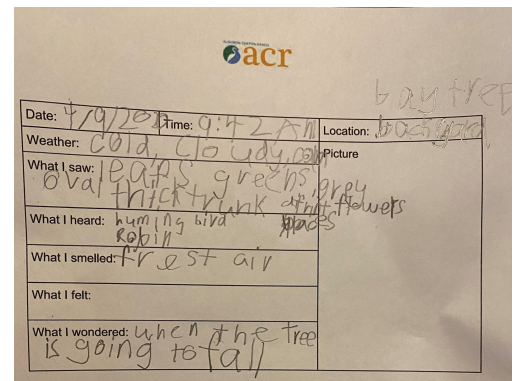 acr
bay tree
Date: 4/9/20 Time: 9:42 AM Location: backyard
Weather: cold, cloudy, Picture
What I saw: leafs greens, grey
oval thick trunk flowers
What I heard: huming bird
Robin
What I smelled: frest air
What I felt:
What I wondered: when the tree
is going to fall